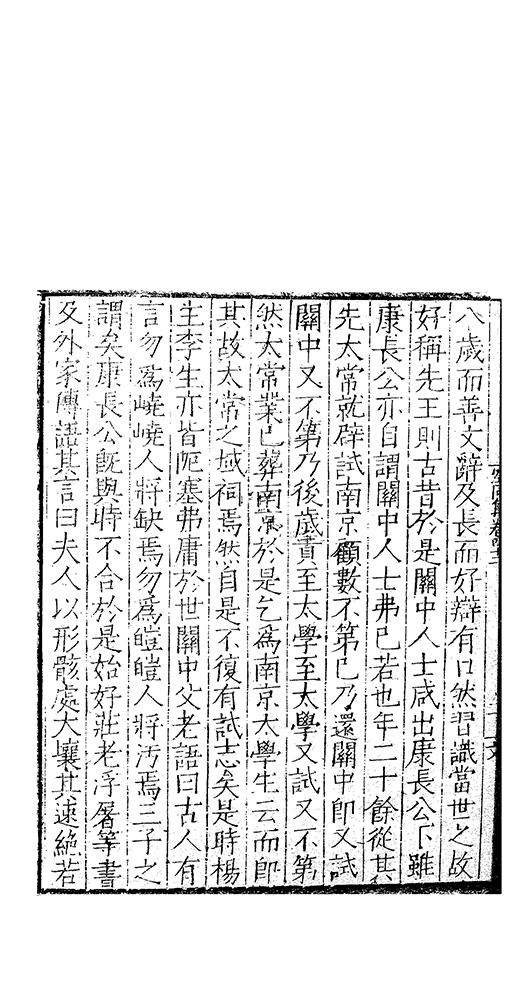 八歲而善文辭及長而好辯有口然習識當世之故
好稱先王則古昔於是關中人士咸出康長公下雖
康長公亦自謂關中人士弗已若也年二十餘從其
先太常就辟試南京顧數不第已乃還關中即又試
關中又不第乃後歲貢至太學至太學又試又不第
然太常業已葬南京於是乞為南京太學生云而即
其故太常之域祠焉然自是不復有試志矣是時楊
主李生亦皆阨塞弗庸於世關中父老語曰古人有
言勿為嶢嶢人將缺焉勿為皚皚人將汚焉三子之
謂矣康長公旣與時不合於是始好莊老浮屠等書
及外家傳語其言曰夫人以形骸處大壤其速絕若